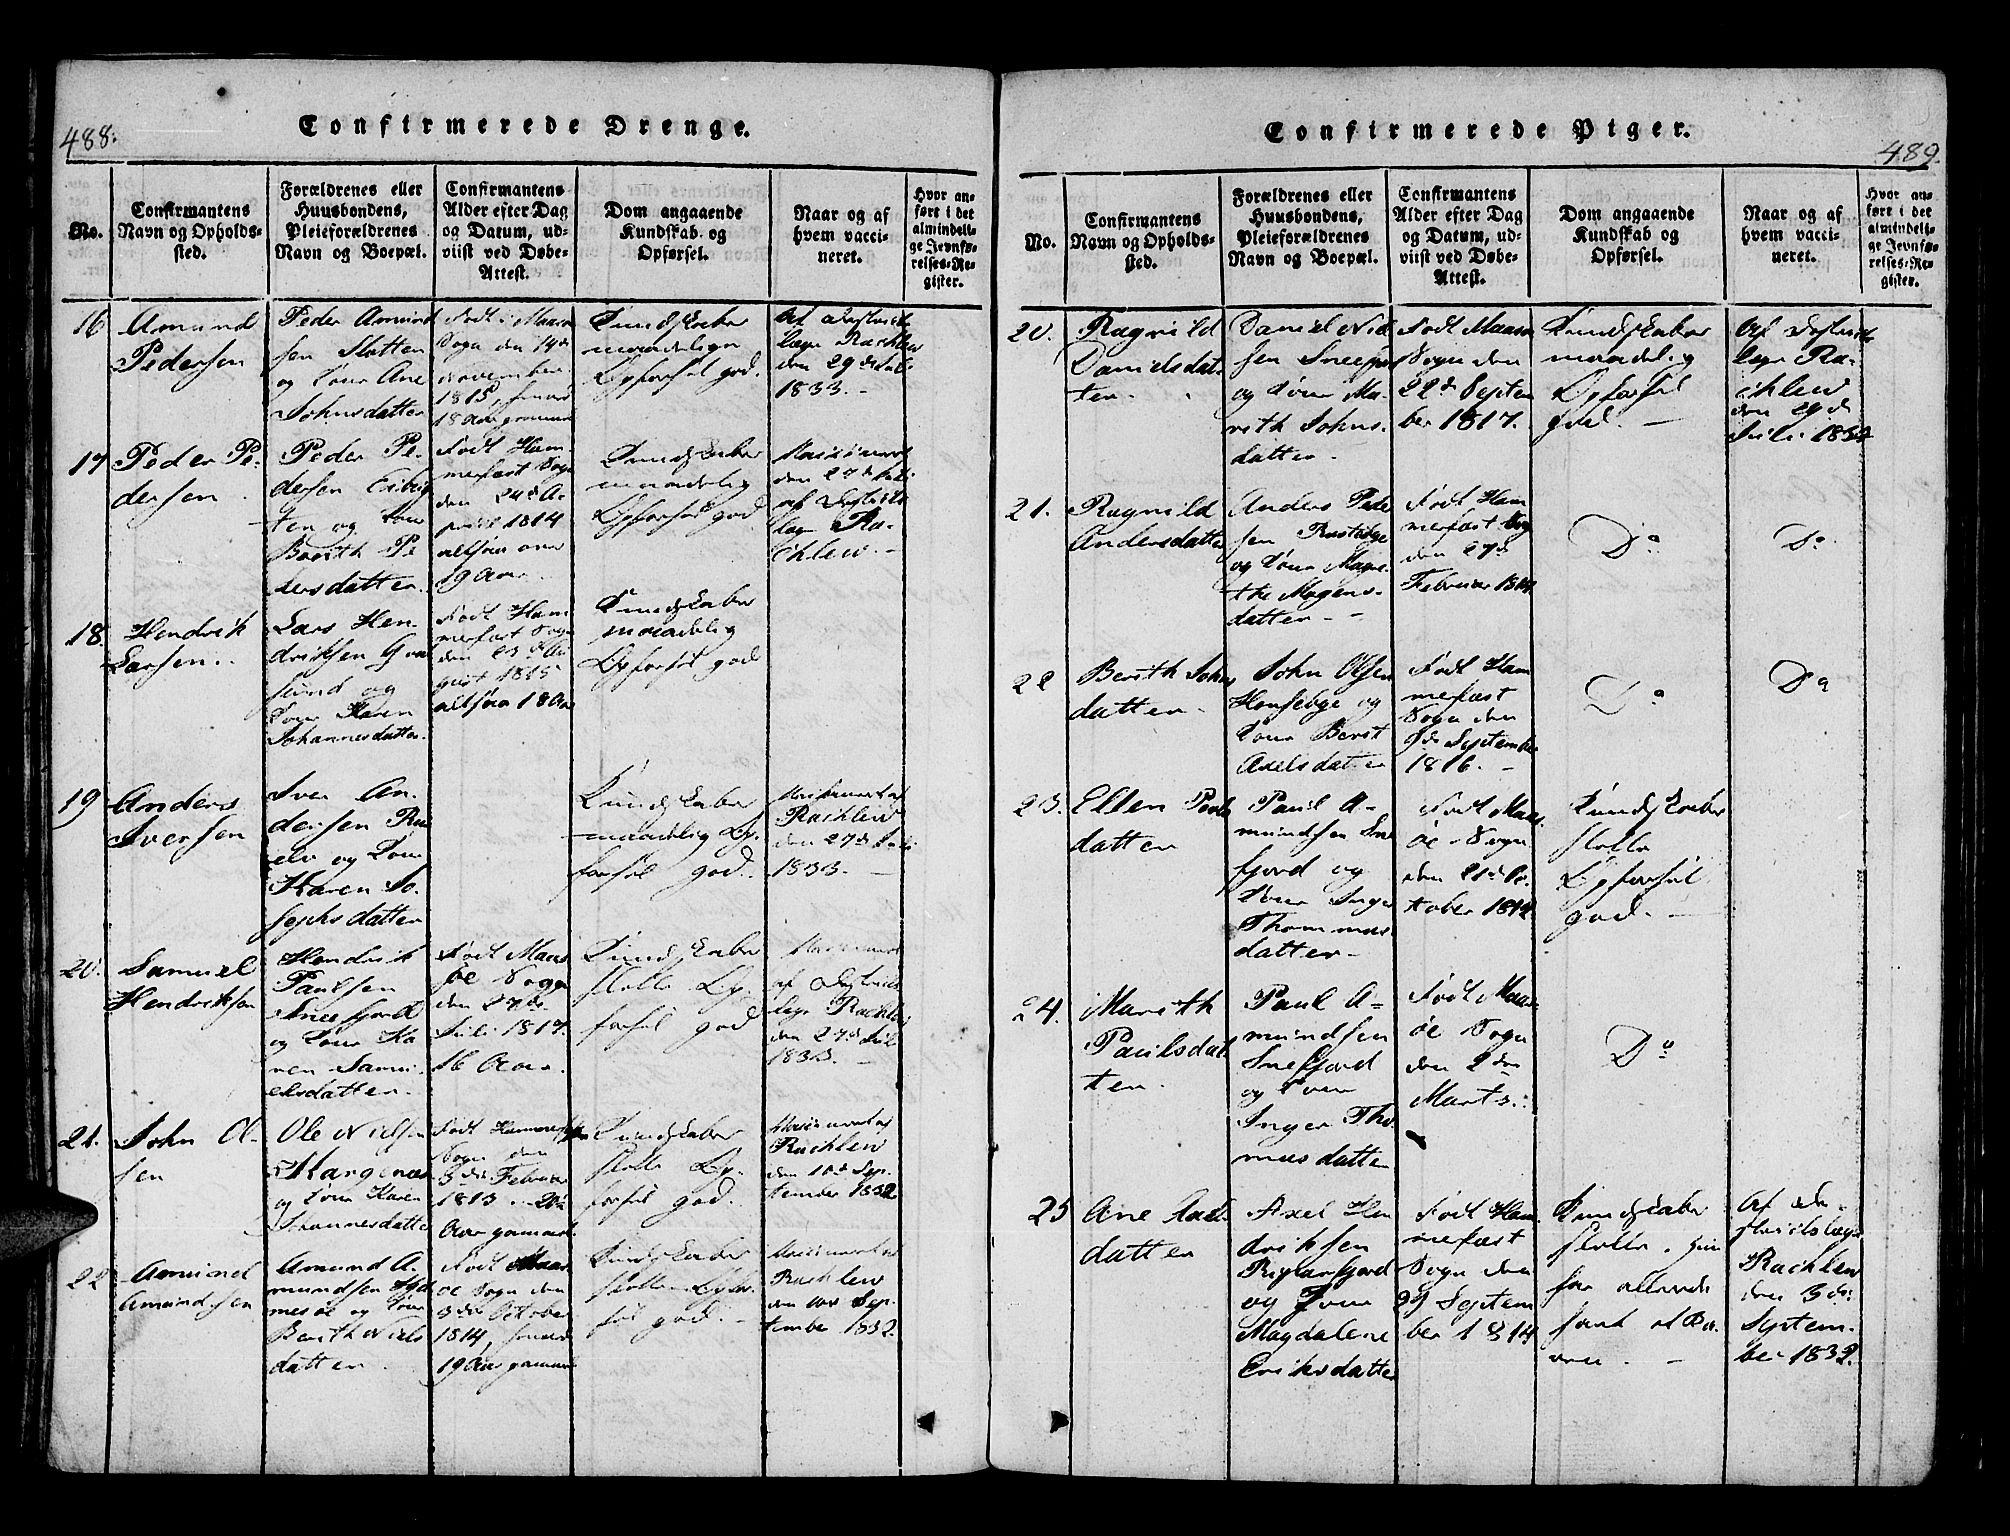 488.
Confirmerede Drenge.
No.
Confirmantens
Navn og Opholds-
sted.
Forældrenes eller
Huusbondens,
Pleieforældrenes
Navn og Boepæl.
Confirmantens
Alder efter Dag
og Datum, ud-
viist ved Døbe-
Attest.
Dom angaaende
Kundskab og
Opførsel.
Naar og af
hvem vacci-
neret.
Hvor an-
ført i det
almindeli-
ge Jevnfø-
relses-Re-
gister.
16
Amund
Pedersen
Peder Amund
sen Slotten
og Ane
Johnsdatter
Født i Maasø
Sogn den 14de
November
1815,
18 Aar gammel
Kundskaber
maadelige
Opførsel god.
Af Districts
læge Rachlew
den 29de Juli
1833.
17
Peder Pe-
dersen
Peder Pe-
dersen
ten og
Berith Pe
dersdatter.
Født Ham
merfest Sogn
den 24de A-
pril 1814
altsaa over
19 Aar
Kundskaber
maadelig
Opførsel god
Vaccineret
den 27de Juli
af Districts
læge Ra-
chlew.
18.
Hendrik
Larsen.
Lars Hen-
driksen
sund og
Karen
Johannesdatter.
Født Ham
merfest Sogn
den 23de Au
gust 1815
altsaa 18 Aar
Kundskaber
maadelig
Opførsel god
19
Anders
Iversen
Iver An-
dersen
elv og
Karen Jo-
sephsdatter
Kundskaber
maadelig Op-
førsel god.
Vaccineret af
Rachlew
den 27de Juli
1833.
20.
Samuel
Hendriksen
Hendrik
Paulsen
Sneefjord
og Ka
ren Samu-
elsdatter.
Født Maas
øe Sogn
den 27de
Juli 1817.
16 Aar.
Kundskaber
slette Op-
førsel god
Vaccineret
af Districts
læge Rachlew
den 27de Juli
1833.
21.
John Ol-
sen
Ole Nielsen
og Karen
Johannesdatter
Født Hammerfest
Sogn den
3de Februar
1813
Aar gammel
Kundskaber
slette Op-
førsel god.
Vaccineret af
Rachlew
den 10de Sep-
tember 1832
22
Amund
Amundsen
Amund A-
mundsen
og
Berith Niels
datter.
Født Maas
øe Sogn den
3de October
1814,
19 Aar gammel
Kundskaber
slette Opfør
sel god.
Vaccineret af
Rachlew
den Sep-
tember 1832.
489.
Confirmerede Piger.
No.
Confirmantens
Navn og Opholds-
sted.
Forældrenes eller
Huusbondens,
Pleieforældrenes
Navn og Boepæl.
Confirmantens
Alder efter Dag
og Datum, ud-
viist ved Døbe-
Attest.
Dom angaaende
Kundskab og
Opførsel.
Naar og af
hvem vacci-
neret.
Hvor an-
ført i det
almindeli-
ge Jevnfø-
relses-Re-
gister.
20.
Ragnild
Danielsdat-
ter.
Daniel Niel
sen
og Ma-
rith Johns-
datter
Født Maasø
Sogn den
22de Septem
ber 1817.
Kundskaber
maadelig
Opførsel
god.
Af Districts
læge Ra-
chlew
den 29de
Juli
21.
Ragnild
Andersdatter
Anders Peder
sen
og Magre-
the Mogens-
datter
Født Ham
merfest Sogn
den 27de
Februar 1814.
Do
Do
22
Berith Johns
datter.
John Olsen
og
Berit
Axelsdatter
Født Ham
merfest
Sogn den
9de September
1816.
Do
Do
23.
Ellen Pauls
datter
Paul A-
mundsen Sne
fjord og
Inger
Thommas
datter.
Født Maas-
øe Sogn
den 21de Oc-
tober
Kundskaber
slette
Opførsel
god.
24.
Marith
Paulsdat
ter.
Paul A-
mundsen
Snefjord
og
Inger Tho
masdatter
Født Maas-
øe Sogn
den 2den
Marts.
Do
25
Ane Axels
datter
Axel Hen
driksen
og
Magdalene
Eriksdatter
Født Ham-
merfest
Sogn den
Septem
ber 1814
Kundskaber
slette.
Af Di-
strictslæge
Rachlew
den 3de
Septem-
ber 1832.